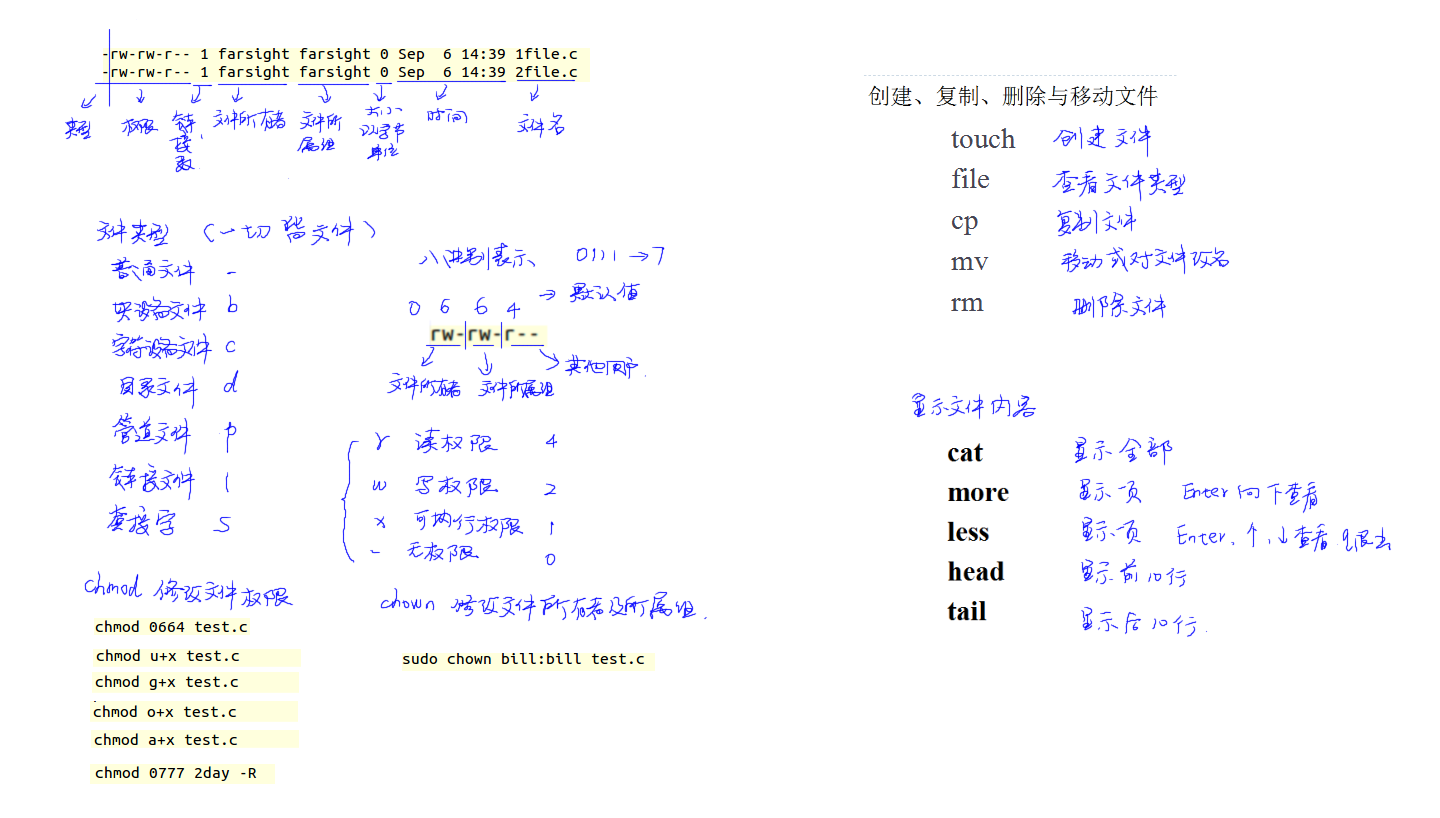 -rw-rw-r-- 1 farsight farsight 0 Sep  6 14:39 1file.c
-rw-rw-r-- 1 farsight farsight 0 Sep  6 14:39 2file.c
类型 权限 链接数 文件所有者 文件所属组 大小以字节单位 时间 文件名
文件类型 (一切皆文件)
普通文件 -
块设备文件 b
字符设备文件 c
目录文件 d
管道文件 p
链接文件 l
套接字 s
八进制表示、 0111 → 7
0 6 6 4 → 默认值
rw-rw-r--
文件所有者 文件所属组 其他用户.
r 读权限 4
w 写权限 2
x 可执行权限 1
- 无权限 0
chmod 修改文件权限
chmod 0664 test.c
chmod u+x test.c
chmod g+x test.c
chmod o+x test.c
chmod a+x test.c
chmod 0777 2day -R
chown 修改文件所有者及所属组.
sudo chown bill:bill test.c
创建、复制、删除与移动文件
touch 创建文件
file 查看文件类型
cp 复制文件
mv 移动或对文件改名
rm 删除文件
显示文件内容
cat 显示全部
more 显示一页 Enter向下查看
less 显示一页 Enter、↑、↓查看 q退出
head 显示前10行
tail 显示后10行.